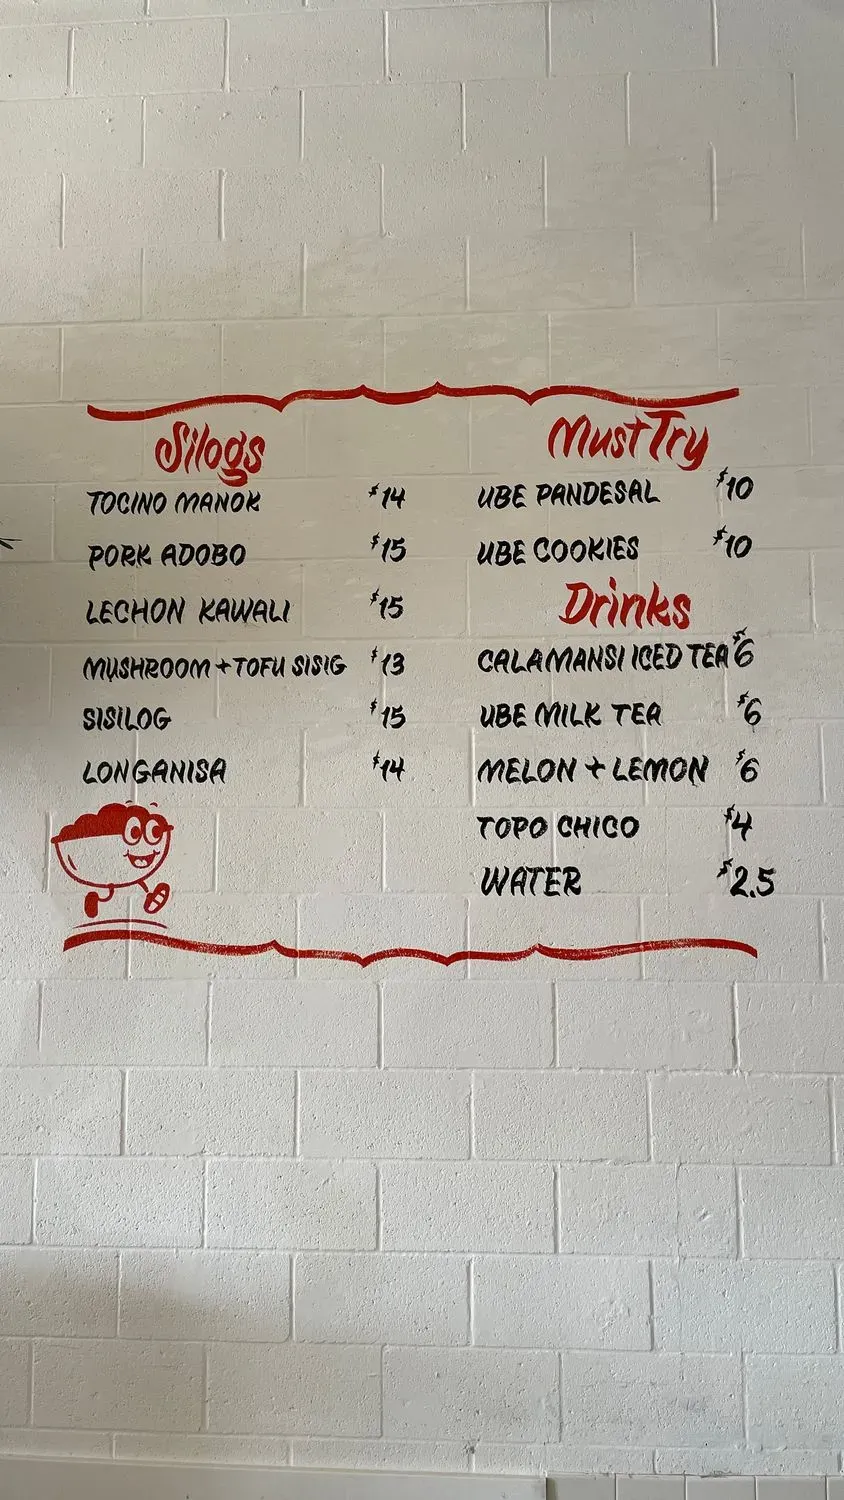 Silogs
TOCINO MANOK $14
PORK ADOBO $15
LECHON KAWALI $15
MUSHROOM + TOFU SISIG $13
SISILOG $15
LONGANISA $14
Must Try
UBE PANDESAL $10
UBE COOKIES $10
Drinks
CALAMANSI ICED TEA $6
UBE MILK TEA $6
MELON + LEMON $6
TOPO CHICO $4
WATER $2.5